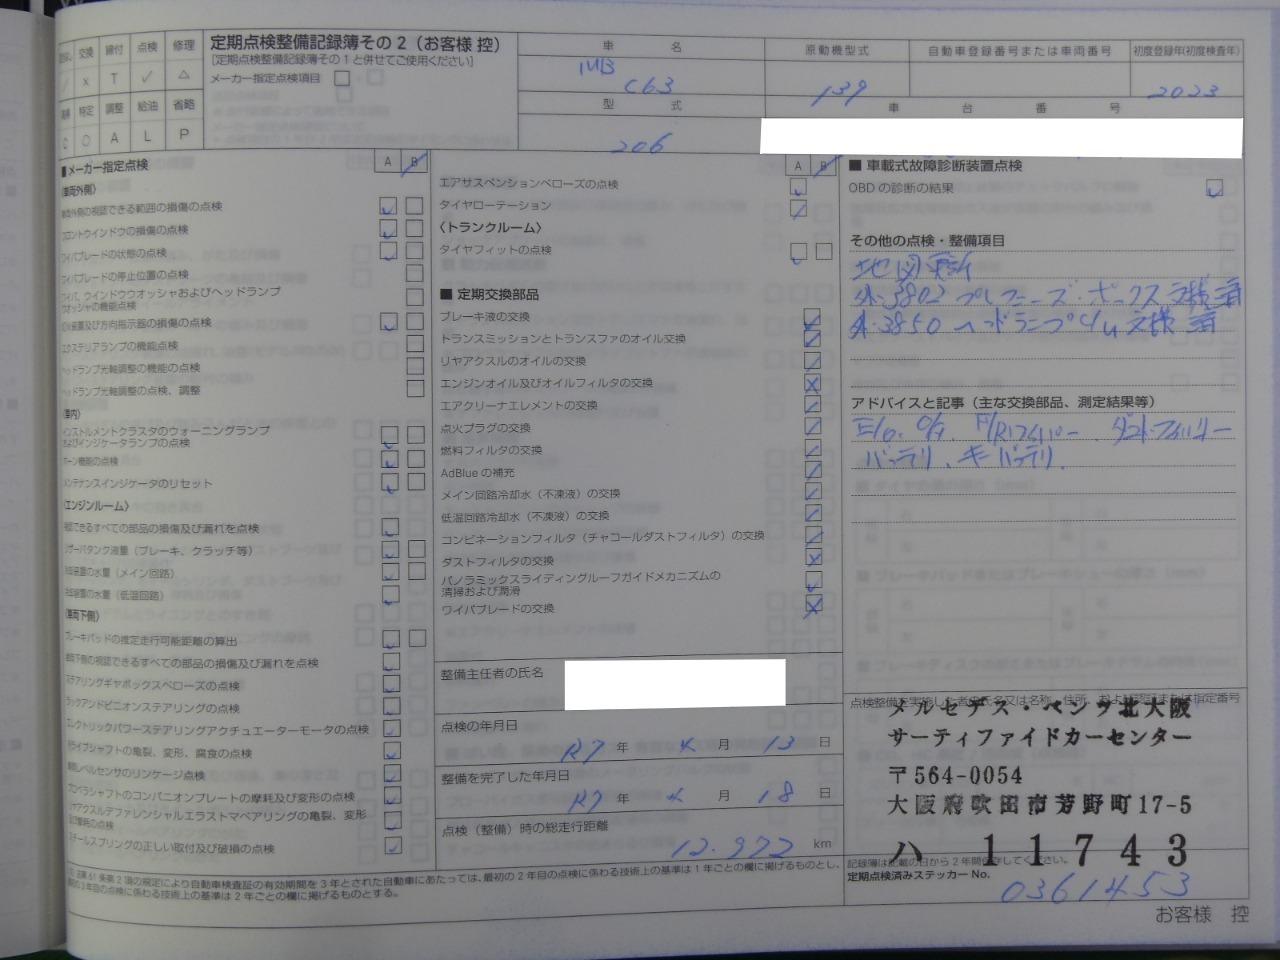 交換 締付 点検 修理
/ × T ✓ △
特定 調整 給油 省略
○ A L P
定期点検整備記録簿その2(お客様 控)
[定期点検整備記録簿その1と併せてご使用ください]
メーカー指定点検項目
車 名
MB
C63
型 式
206
原動機型式
139
自動車登録番号または車両番号
初度登録年(初度検査年)
2023
車 台 番 号
■メーカー指定点検
A B
(車両外側)
車両外側の視認できる範囲の損傷の点検
フロントウインドウの損傷の点検
ワイパブレードの状態の点検
ワイパブレードの停止位置の点検
ワイパ、ウインドウウオッシャおよびヘッドランプ
ウオッシャの機能点検
灯火装置及び方向指示器の損傷の点検
エクステリアランプの機能点検
ヘッドランプ光軸調整の機能の点検
ヘッドランプ光軸調整の点検、調整
(車内)
インストルメントクラスタのウォーニングランプ
およびインジケータランプの点検
ホーン機能の点検
メンテナンスインジケータのリセット
(エンジンルーム)
視認できるすべての部品の損傷及び漏れを点検
リザーバタンク液量(ブレーキ、クラッチ等)
冷却装置の水量(メイン回路)
冷却装置の水量(低温回路)
(車両下側)
ブレーキパッドの推定走行可能距離の算出
車両下側の視認できるすべての部品の損傷及び漏れを点検
ステアリングギヤボックスベローズの点検
ラックアンドピニオンステアリングの点検
エレクトリックパワーステアリングアクチュエーターモータの点検
ドライブシャフトの亀裂、変形、腐食の点検
車両レベルセンサのリンケージ点検
プロペラシャフトのコンパニオンプレートの摩耗及び変形の点検
リヤアクスルデファレンシャルエラストマベアリングの亀裂、変形
及び摩耗の点検
スチールスプリングの正しい取付及び破損の点検
A B
エアサスペンションベローズの点検
タイヤローテーション
〈トランクルーム〉
タイヤフィットの点検
■ 定期交換部品
ブレーキ液の交換
トランスミッションとトランスファのオイル交換
リヤアクスルのオイルの交換
エンジンオイル及びオイルフィルタの交換
エアクリーナエレメントの交換
点火プラグの交換
燃料フィルタの交換
AdBlue の補充
メイン回路冷却水(不凍液)の交換
低温回路冷却水(不凍液)の交換
コンビネーションフィルタ(チャコールダストフィルタ)の交換
ダストフィルタの交換
パノラミックスライディングルーフガイドメカニズムの
清掃および潤滑
ワイパブレードの交換
整備主任者の氏名
点検の年月日
R7 年 4 月 13 日
整備を完了した年月日
R7 年 4 月 18 日
点検(整備)時の総走行距離
12.972 km
■ 車載式故障診断装置点検
OBD の診断の結果
その他の点検・整備項目
地図更新
外-3802 プレフューズ・ボックス交換 済
外-3850 ヘッドランプCU 交換 済
アドバイスと記事(主な交換部品、測定結果等)
E/o. O/F. F/Rワイパー、ダストフィルター
バッテリ、キーバッテリ.
点検整備を実施した者の氏名又は名称、住所、および認証または指定番号
メルセデス・ベンツ北大阪
サーティファイドカーセンター
〒564-0054
大阪府吹田市芳野町17-5
ハ 11743
記録簿は記載の日から2年間保存してください。
定期点検済みステッカー No.
0361453
法第61条第2項の規定により自動車検査証の有効期間を3年とされた自動車にあたっては、最初の2年目の点検に係わる技術上の基準は1年ごとの欄に掲げるものとし、
3年目の点検に係わる技術上の基準は2年ごとの欄に掲げるものとする。
お客様 控